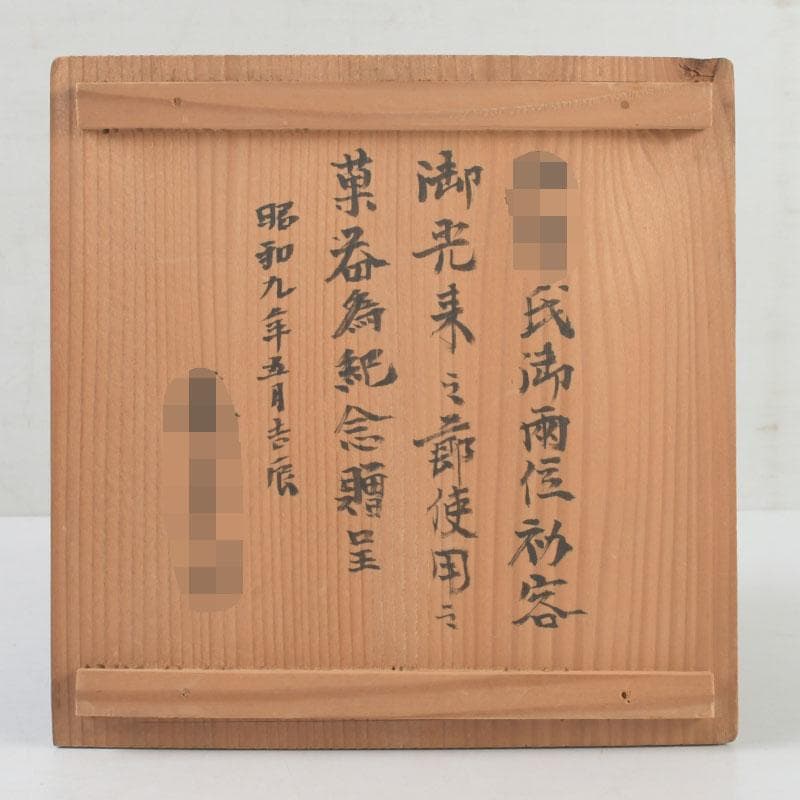 氏御両位初客
御光来之節使用之
菓器為紀念贈呈
昭和九年五月吉辰